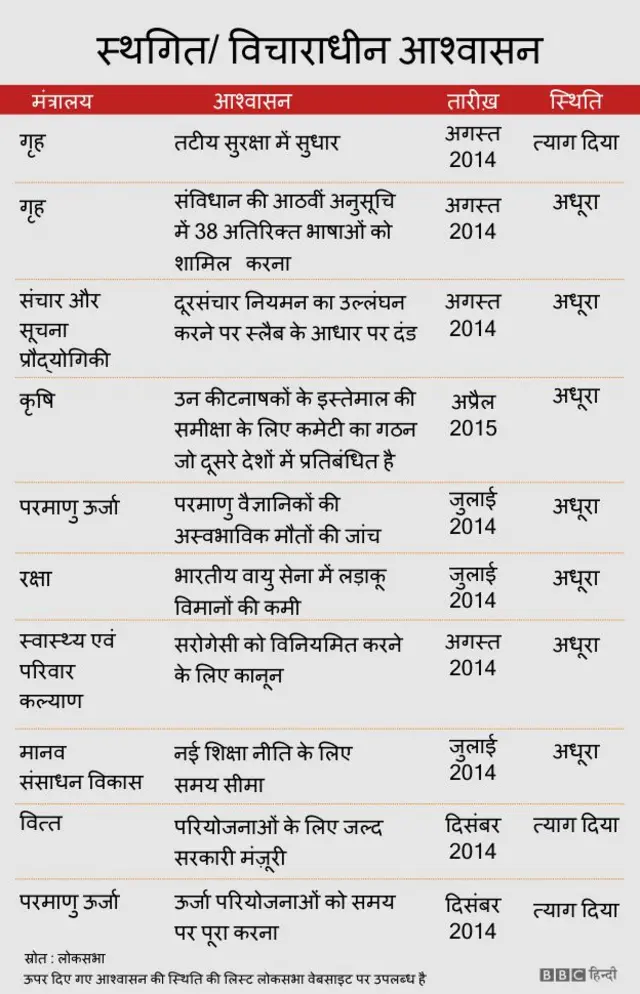 स्थगित/ विचाराधीन आश्वासन
मंत्रालय आश्वासन तारीख़ स्थिति
गृह तटीय सुरक्षा में सुधार अगस्त 2014 त्याग दिया
गृह संविधान की आठवीं अनुसूचि अगस्त 2014 अधूरा
में 38 अतिरिक्त भाषाओं को
शामिल करना
संचार और दूरसंचार नियमन का उल्लंघन अगस्त 2014 अधूरा
सूचना करने पर स्लैब के आधार पर दंड
प्रौद्योगिकी
कृषि उन कीटनाषकों के इस्तेमाल की अप्रैल 2015 अधूरा
समीक्षा के लिए कमेटी का गठन
जो दूसरे देशों में प्रतिबंधित है
परमाणु ऊर्जा परमाणु वैज्ञानिकों की जुलाई 2014 अधूरा
अस्वभाविक मौतों की जांच
रक्षा भारतीय वायु सेना में लड़ाकू जुलाई 2014 अधूरा
विमानों की कमी
स्वास्थ्य एवं सरोगेसी को विनियमित करने अगस्त 2014 अधूरा
परिवार के लिए कानून
कल्याण
मानव नई शिक्षा नीति के लिए जुलाई 2014 अधूरा
संसाधन विकास समय सीमा
वित्त परियोजनाओं के लिए जल्द दिसंबर 2014 त्याग दिया
सरकारी मंज़ूरी
परमाणु ऊर्जा ऊर्जा परियोजनाओं को समय दिसंबर 2014 त्याग दिया
पर पूरा करना
स्रोत : लोकसभा
ऊपर दिए गए आश्वासन की स्थिति की लिस्ट लोकसभा वेबसाइट पर उपलब्ध है
BBC हिन्दी